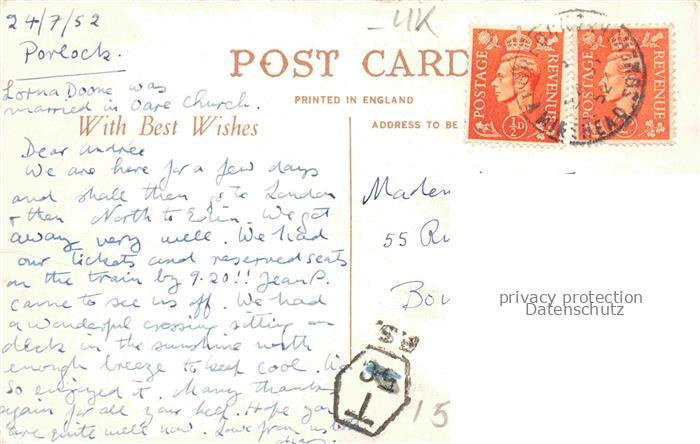 24/7/52
Porlock.
Lorna Doone was
married in Oare Church.
UK
POST CARD
PRINTED IN ENGLAND
With Best Wishes
ADDRESS TO BE
POSTAGE REVENUE
½D
POSTAGE REVENUE
MINEHEAD
Dear Andrée
We are here for a few days
and shall then go to London
+ then North to Edin. We got
away very well. We had
our tickets and reserved seats
on the train by 9.20!! Jean P.
came to see us off. We had
a wonderful crossing sitting on
deck in the sunshine with
enough breeze to keep cool.
So enjoyed it. Many thanks
again for all your help. Hope you
are quite well now. Love from us
55 Ru
Bou
privacy protection
Datenschutz
T
15